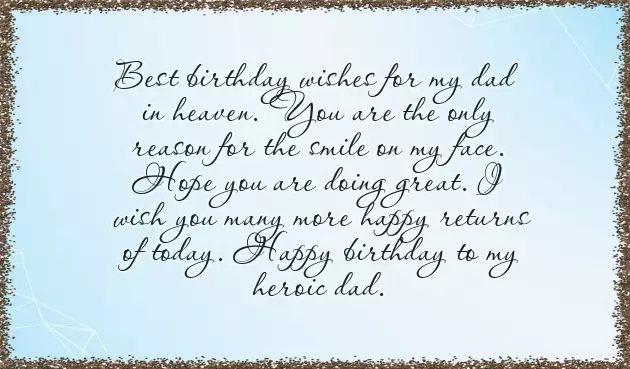 Best birthday wishes for my dad
in heaven. You are the only
reason for the smile on my face.
Hope you are doing great. I
wish you many more happy returns
of today. Happy birthday to my
heroic dad.